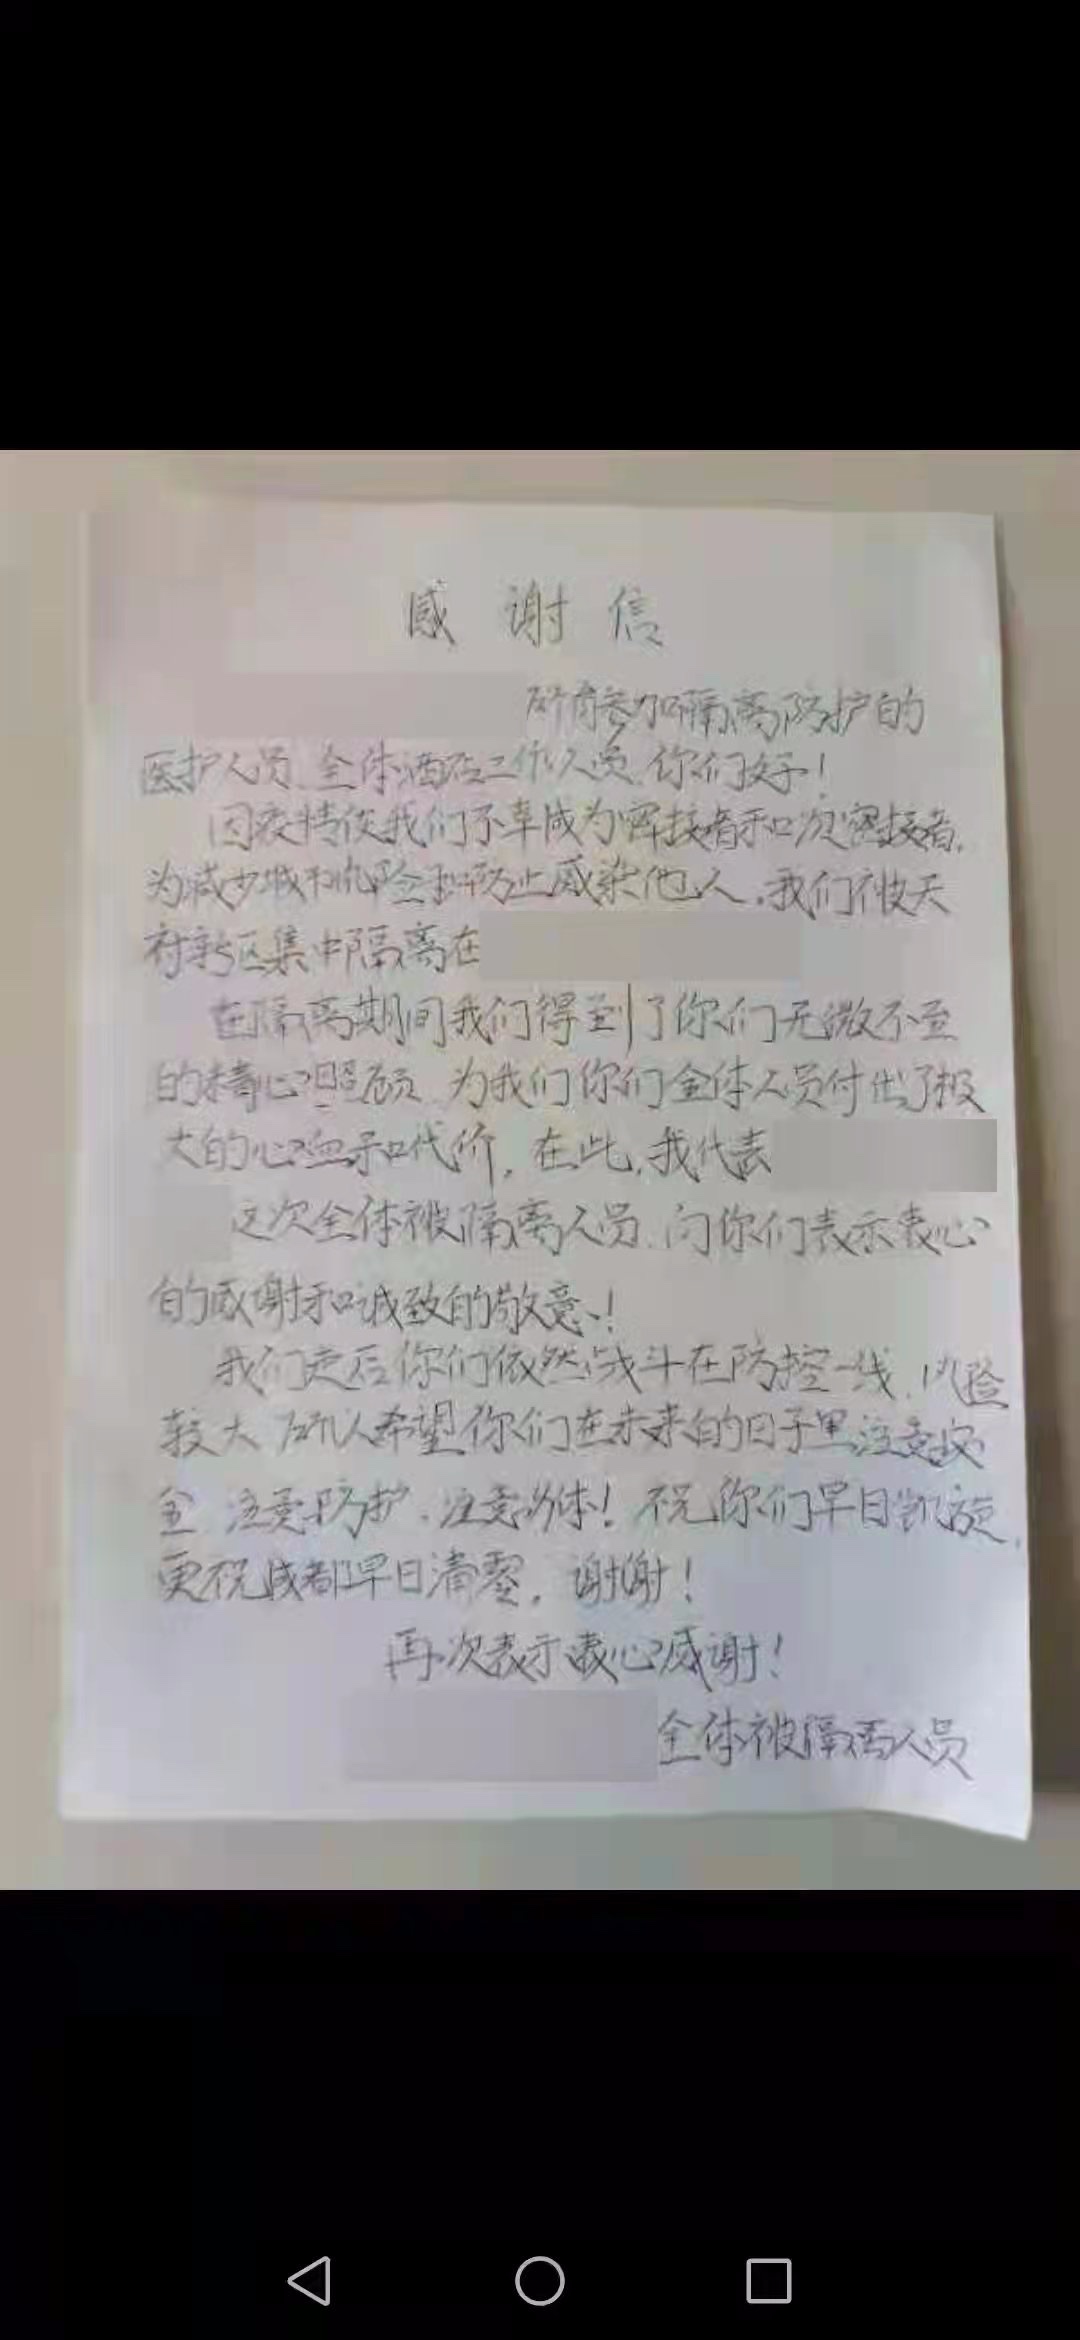 感谢信
所有参加隔离防护的
医护人员、全体酒店工作人员、你们好!
因疫情使我们不幸成为密接者和次密接者,
为减少城市风险和防止感染他人,我们被天
府新区集中隔离在
在隔离期间我们得到了你们无微不至
的精心照顾、为我们你们全体人员付出了极
大的心血和代价,在此,我代表
这次全体被隔离人员、向你们表示衷心
的感谢和诚致的敬意!
我们走后你们依然战斗在防控一线、风险
较大 所以希望你们在未来的日子里注意安
全 注意防护、注意身体!祝你们早日凯旋,
更祝成都早日清零,谢谢!
再次表示衷心感谢!
全体被隔离人员